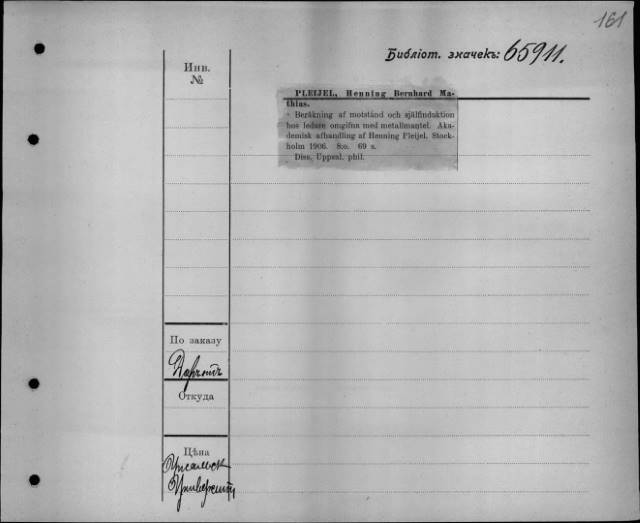 161
Библіот. значекъ: 65911.
Инв.
№
PLEIJEL, Henning Bernhard Ma-
thias.
Beräkning af motstånd och själfinduktion
hos ledare omgifna med metallmantel. Aka-
demisk afhandling af Henning Pleijel. Stock-
holm 1906. 8:o. 69 s.
Diss. Uppsal. phil.
По заказу
Даръ отъ
Откуда
Цѣна
Упсальск
Университ